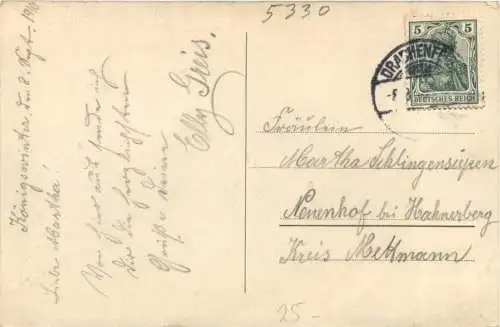 5330
Königswinter, den 8. Sept. 190
Liebe Martha!
Von hier aus sende ich
Dir die herzlichsten
Grüße Deine
Elly Greis.
5 5
DEUTSCHES REICH
DRACHENF
Fräulein
Martha Schlingensiepen
Neuenhof bei Hahnerberg
Kreis Mettmann
25-